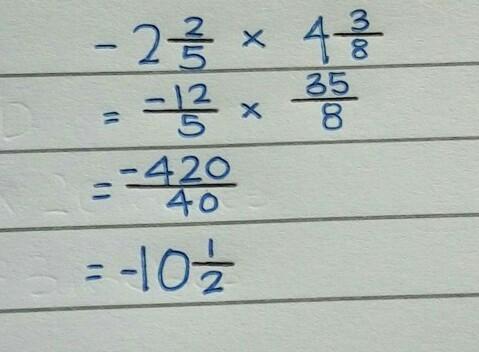 - 2 2/5 × 4 3/8
= -12/5 × 35/8
= -420/40
= -10 1/2